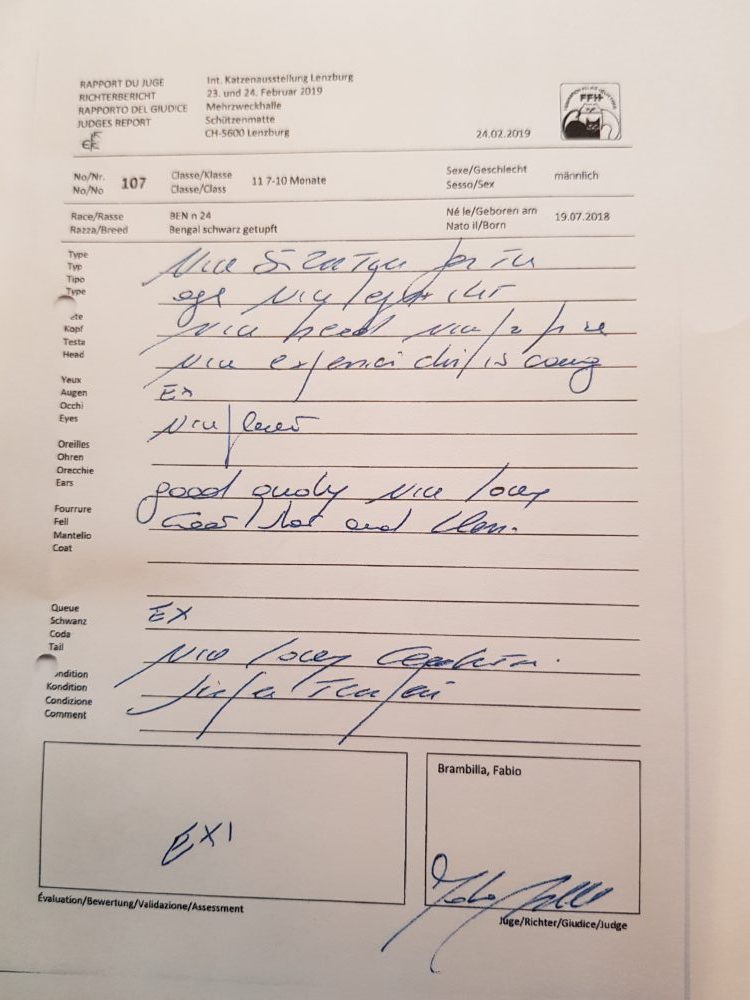 RAPPORT DU JUGE
RICHTERBERICHT
RAPPORTO DEL GIUDICE
JUDGES REPORT
Int. Katzenausstellung Lenzburg
23. und 24. Februar 2019
Mehrzweckhalle
Schützenmatte
CH-5600 Lenzburg
24.02.2019
FFH
No/Nr.
No/No
107
Classe/Klasse
Classe/Class
11 7-10 Monate
Sexe/Geschlecht
Sesso/Sex
männlich
Race/Rasse
Razza/Breed
BEN n 24
Bengal schwarz getupft
Né le/Geboren am
Nato il/Born
19.07.2018
Type
Typ
Tipo
Type
Nice
age Nice
ete
Kopf
Testa
Head
Nice head Nice
Nice
Yeux
Augen
Occhi
Eyes
EX
Oreilles
Ohren
Orecchie
Ears
Nice
Fourrure
Fell
Mantello
Coat
good Nice
and
Queue
Schwanz
Coda
Tail
EX
ondition
Kondition
Condizione
Comment
Nice
EX1
Évaluation/Bewertung/Validazione/Assessment
Brambilla, Fabio
Juge/Richter/Giudice/Judge